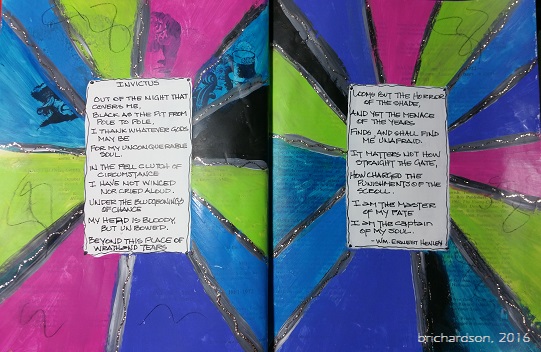 INVICTUS
OUT OF THE NIGHT THAT
COVERS ME,
BLACK AS THE PIT FROM
POLE TO POLE,
I THANK WHATEVER GODS
MAY BE
FOR MY UNCONQUERABLE
SOUL.
IN THE FELL CLUTCH OF
CIRCUMSTANCE
I HAVE NOT WINCED
NOR CRIED ALOUD.
UNDER THE BLUDGEONINGS
OF CHANCE
MY HEAD IS BLOODY,
BUT UNBOWED.
BEYOND THIS PLACE OF
WRATH AND TEARS
LOOMS BUT THE HORROR
OF THE SHADE,
AND YET THE MENACE
OF THE YEARS
FINDS, AND SHALL FIND
ME UNAFRAID.
IT MATTERS NOT HOW
STRAIGHT THE GATE,
HOW CHARGED THE
PUNISHMENTS OF THE
SCROLL.
I AM THE MASTER
OF MY FATE
I AM THE CAPTAIN
OF MY SOUL.
- WM. ERNEST HENLEY
brichardson, 2016